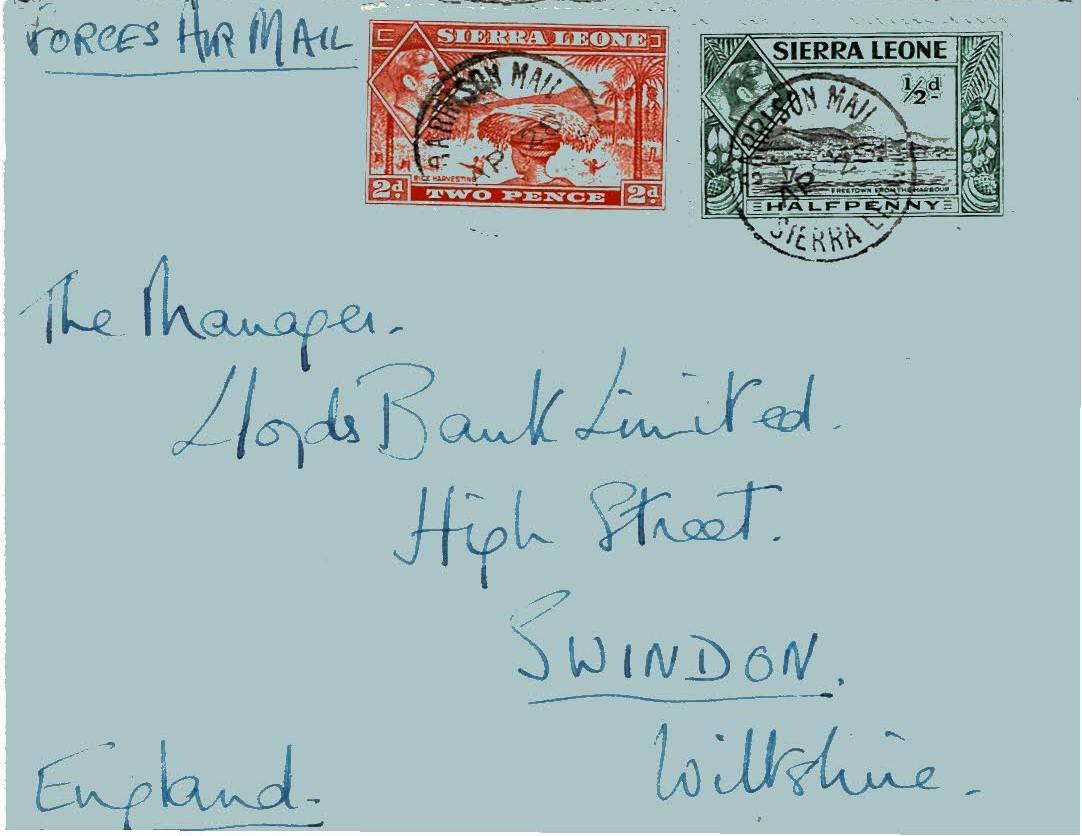 FORCES AIR MAIL
SIERRA LEONE
RICE HARVESTING
2d TWO PENCE 2d
SIERRA LEONE
½d
FREETOWN FROM THE HARBOUR
HALFPENNY
GARRISON MAIL
AP
GARRISON MAIL
AP
SIERRA LEONE
The Manager.
Lloyds Bank Limited.
High Street.
SWINDON.
Wiltshire.
England.